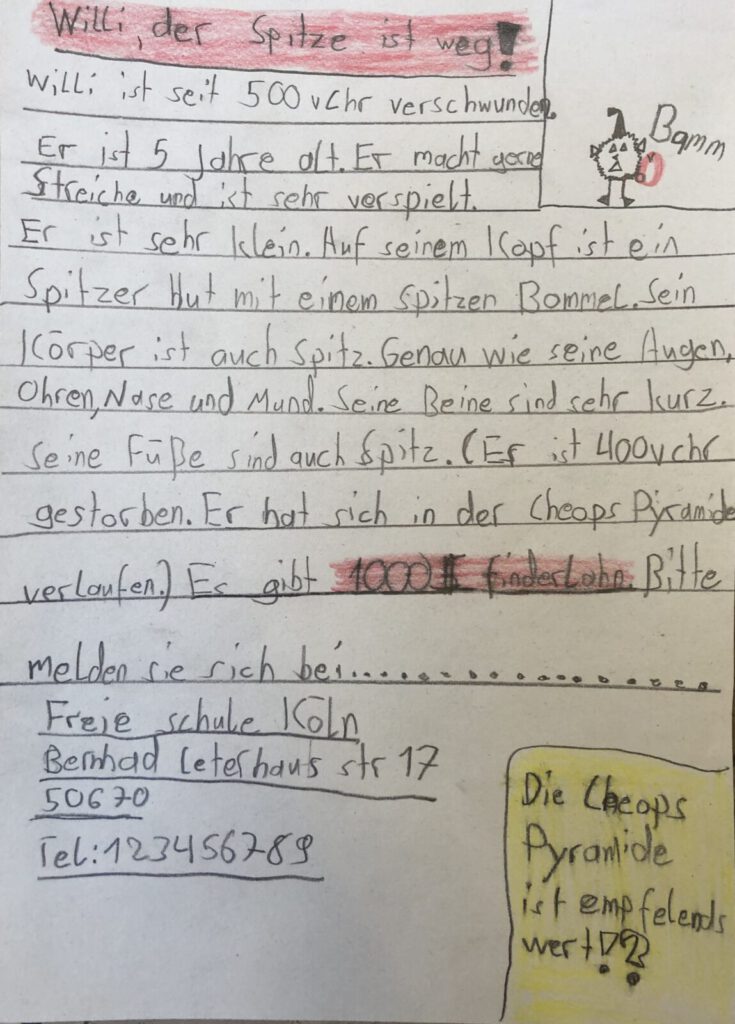 Willi, der Spitze ist weg!
Willi ist seit 500 vChr verschwunden.
Bamm
Er ist 5 Jahre alt. Er macht gerne
Streiche und ist sehr verspielt.
Er ist sehr klein. Auf seinem Kopf ist ein
Spitzer Hut mit einem spitzen Bommel. Sein
Körper ist auch Spitz. Genau wie seine Augen,
Ohren, Nase und Mund. Seine Beine sind sehr kurz.
Seine Füße sind auch Spitz. (Er ist 400vchr
gestorben. Er hat sich in der Cheops Pyramide
verlaufen.) Es gibt 1000$ finderLohn. Bitte
melden sie sich bei.................
Freie schule Köln
Bernhad Leterhaus str 17
50670
Tel: 123456789
Die Cheops
Pyramide
ist empfelends
wert!?